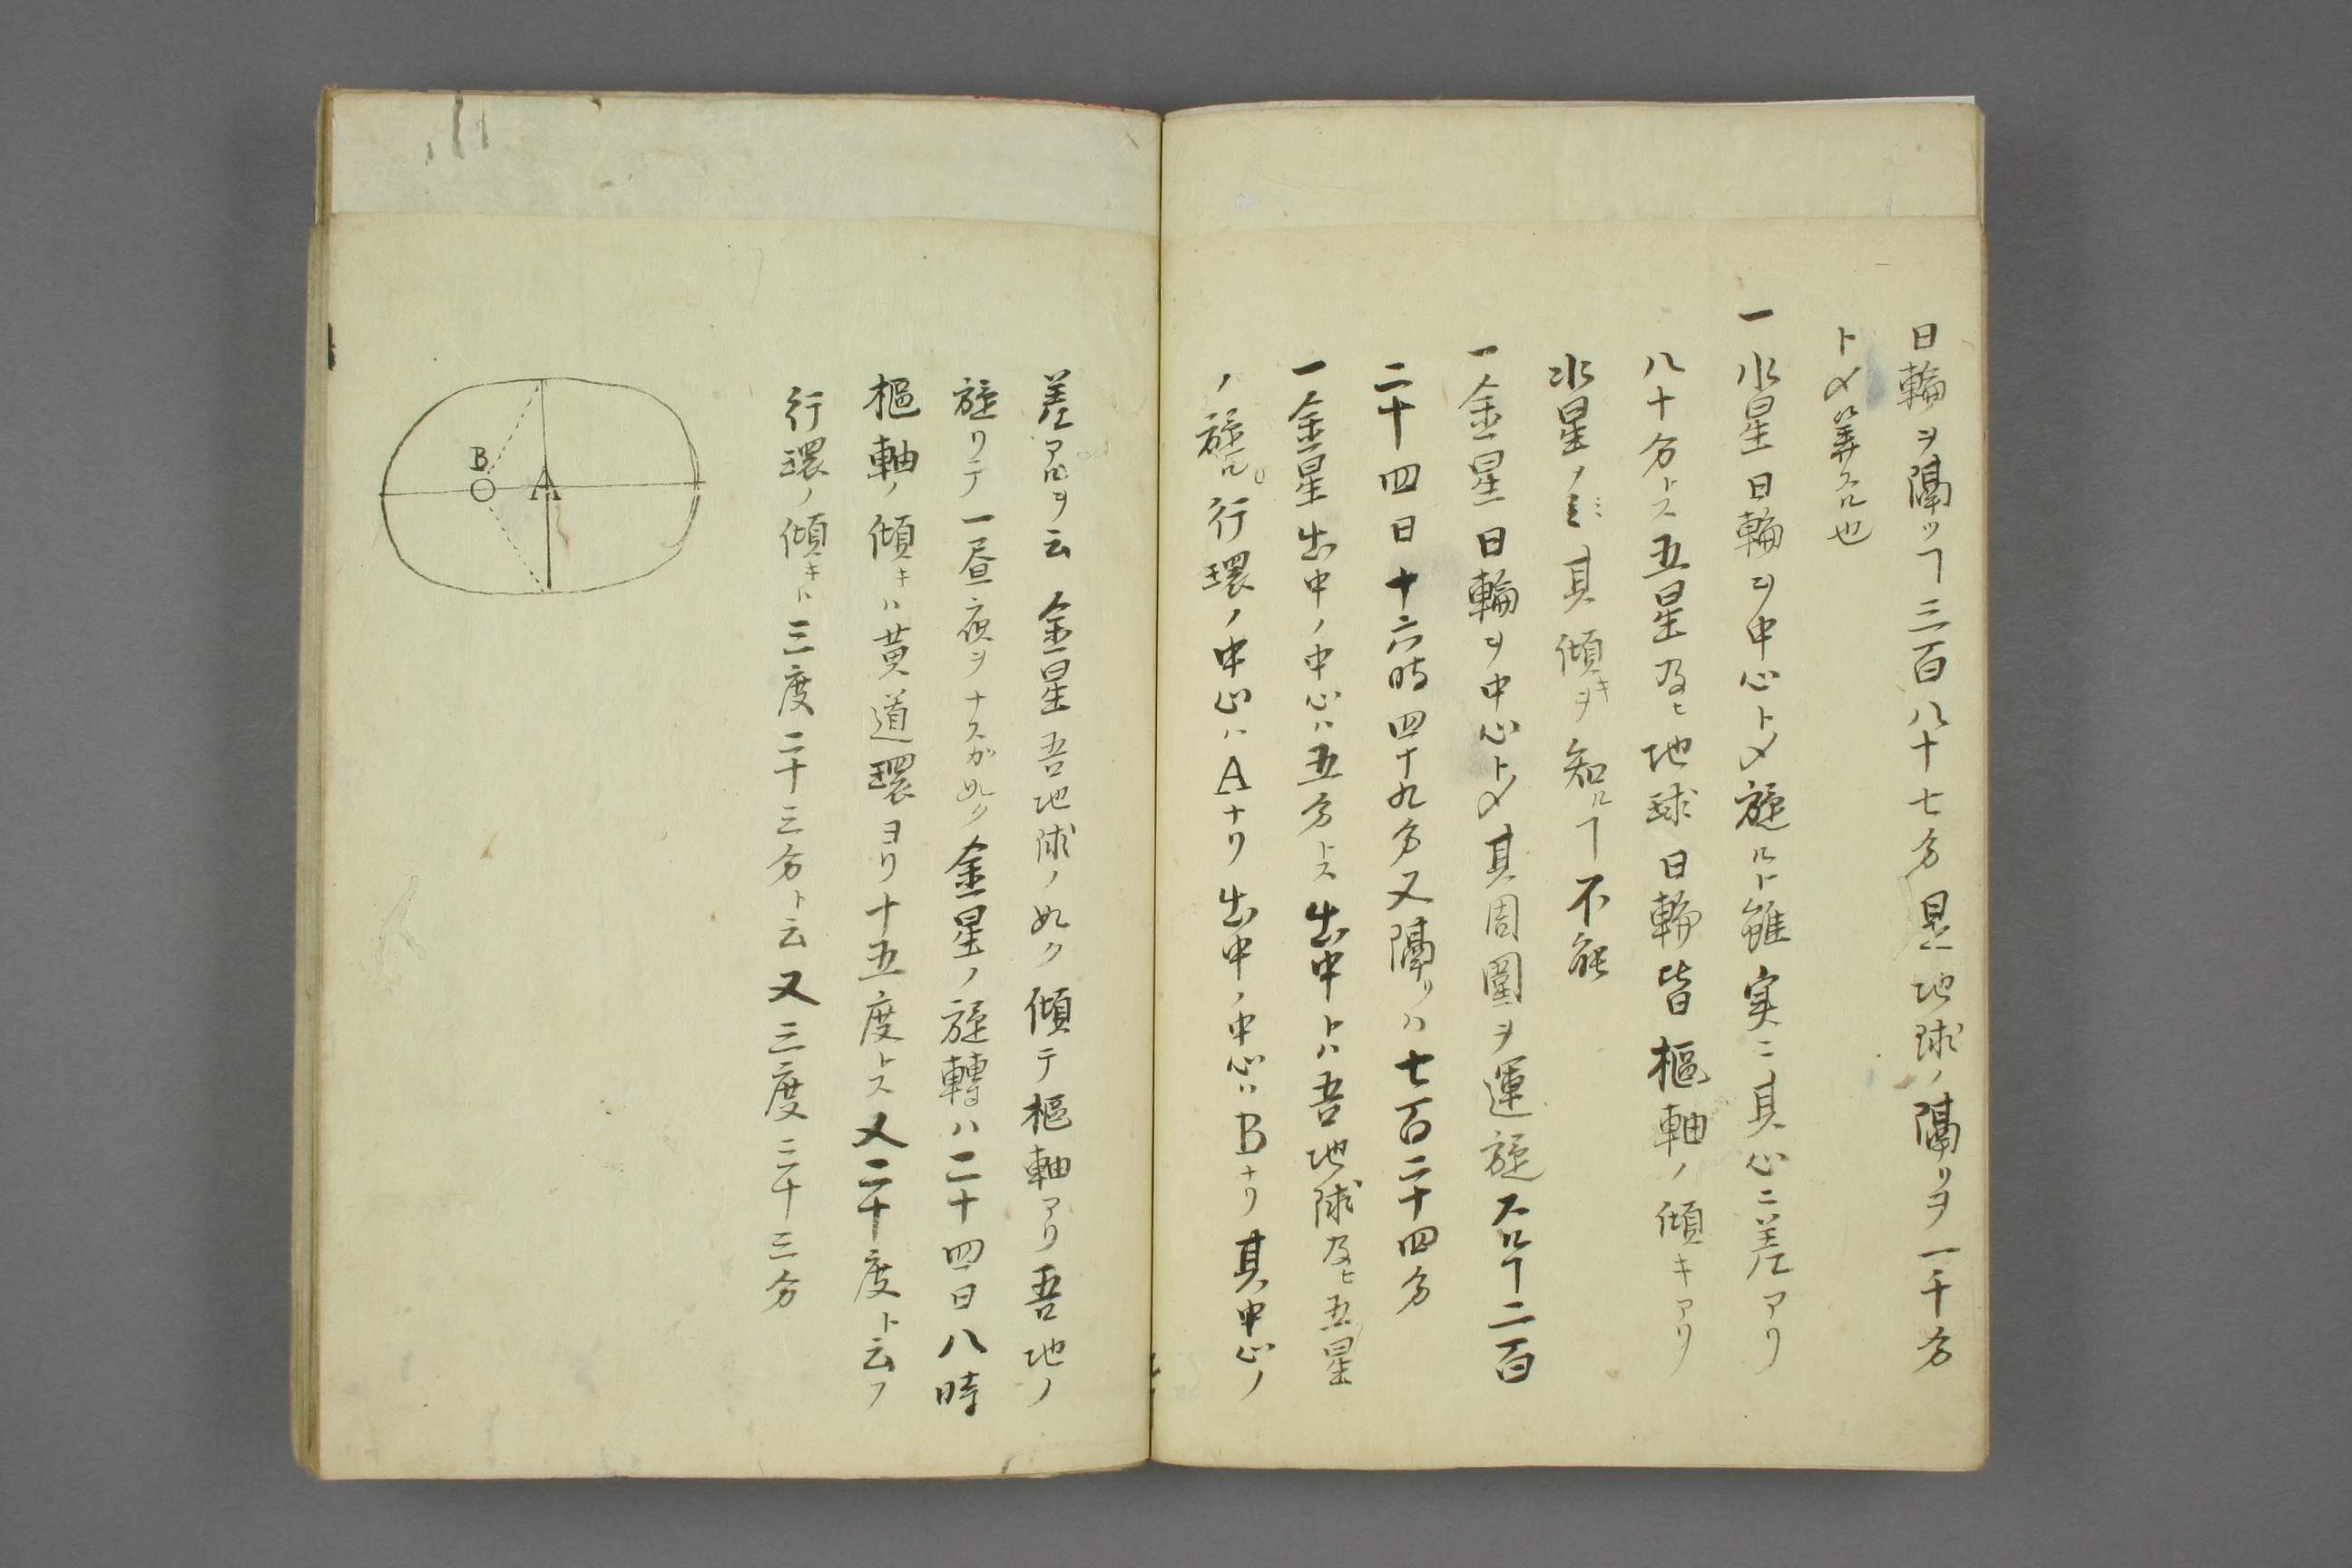 日輪ヲ隔ツヿ三百八十七分是地球ノ隔リヲ一千分
ト〆筭スル也
一水星日輪ヲ中心ト〆旋ルト雖実ニ其心ニ差アリ
八十分トス五星及ヒ地球日輪皆樞軸ノ傾キアリ
水星ノミ其傾キヲ知ルヿ不能
一金星日輪ヲ中心ト〆其周圍ヲ運旋スルヿ二百
二十四日十六時四十九分又隔リハ七百二十四分
一金星出中ノ中心ハ五分トス出中トハ吾地球及ヒ五星
ノ旋ル行環ノ中心ハAナリ出中ノ中心ハBナリ其中心ノ
差アルヲ云金星吾地球ノ如ク傾テ樞軸アリ吾地ノ
旋リテ一昼夜ヲナスガ如ク金星ノ旋轉ハ二十四日八時
樞軸ノ傾キハ黄道環ヨリ十五度トス又二十度ト云フ
行環ノ傾キト三度二十三分ト云又三度二十三分
B
A